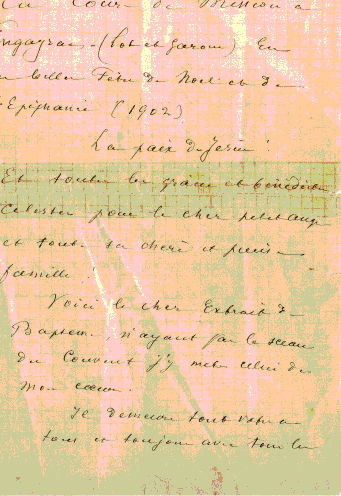 Cour de
(Lot et Garonne) En
belles Fêtes de Noël et de
Epiphanie (1902)
La paix de Jésus !
Et toutes les grâces et bénédict
célestes pour le cher petit ange
et toute sa chère et pieuse
famille !
Voici le cher Extrait de
Baptême, n'ayant pas le sceau
du Couvent j'y mets celui de
mon cœur.
Je demeure tout votre
tous et toujours avec tous les